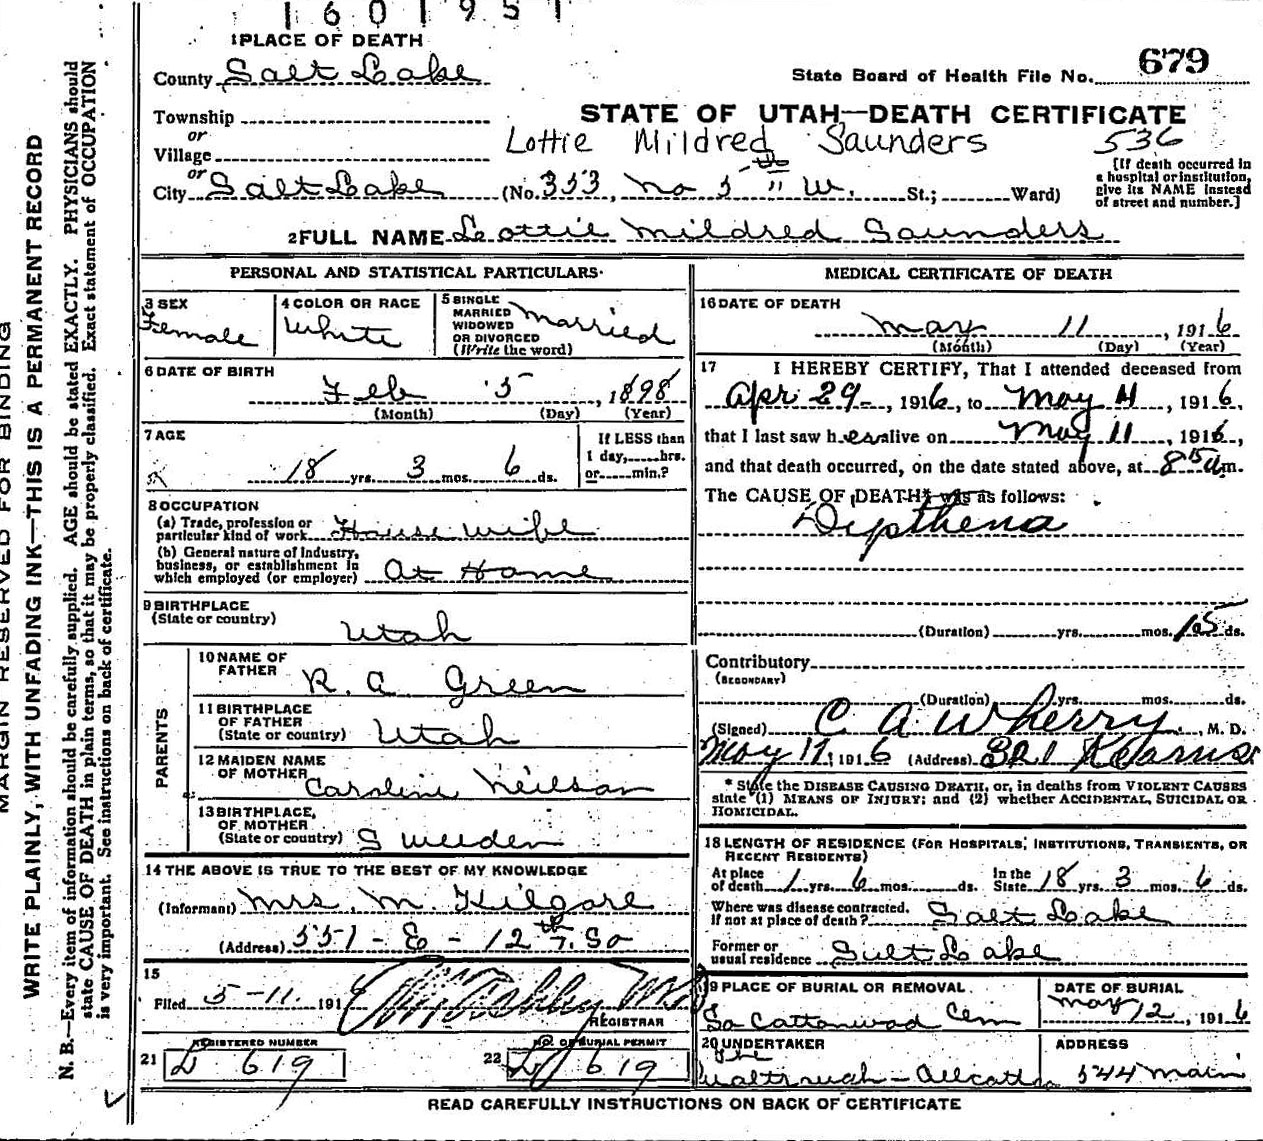 1601951
1 PLACE OF DEATH
County Salt Lake
State Board of Health File No. 679
Township
STATE OF UTAH—DEATH CERTIFICATE
or
Lottie Mildred Saunders 536
Village
or
City Salt Lake (No. 353, no 5 th W. St.; Ward)
[If death occurred in
a hospital or institution,
give its NAME instead
of street and number.]
2 FULL NAME Lottie Mildred Saunders
PERSONAL AND STATISTICAL PARTICULARS
3 SEX
Female
4 COLOR OR RACE
White
5 SINGLE
MARRIED
WIDOWED
OR DIVORCED
(Write the word)
Married
6 DATE OF BIRTH
Feb 5, 1898
(Month) (Day) (Year)
7 AGE
18 yrs. 3 mos. 6 ds.
If LESS than
1 day, hrs.
or min.?
8 OCCUPATION
(a) Trade, profession or
particular kind of work House wife
(b) General nature of industry,
business, or establishment in
which employed (or employer) At Home
9 BIRTHPLACE
(State or country)
Utah
PARENTS
10 NAME OF
FATHER
R. A Green
11 BIRTHPLACE
OF FATHER
(State or country) Utah
12 MAIDEN NAME
OF MOTHER
Caroline Neilson
13 BIRTHPLACE,
OF MOTHER
(State or country) Sweeden
14 THE ABOVE IS TRUE TO THE BEST OF MY KNOWLEDGE
(Informant) Mrs. M. Kilgore
(Address) 551 - E - 12th So
15
Filed 5-11. 191
REGISTRAR
REGISTERED NUMBER
21 L 619
NO. OF BURIAL PERMIT
22 L 619
MEDICAL CERTIFICATE OF DEATH
16 DATE OF DEATH
May 11, 1916
(Month) (Day) (Year)
17 I HEREBY CERTIFY, That I attended deceased from
Apr 29, 1916, to May 11, 1916,
that I last saw her alive on May 11, 1916,
and that death occurred, on the date stated above, at 8 15 a m.
The CAUSE OF DEATH* was as follows:
Dyptheria
(Duration) yrs. mos. 15 ds.
Contributory
(SECONDARY)
(Duration) yrs. mos. ds.
(Signed) C A Wherry, M. D.
May 11, 1916 (Address) 321 Kearns
* State the DISEASE CAUSING DEATH, or, in deaths from VIOLENT CAUSES
state (1) MEANS OF INJURY; and (2) whether ACCIDENTAL, SUICIDAL OR
HOMICIDAL.
18 LENGTH OF RESIDENCE (FOR HOSPITALS, INSTITUTIONS, TRANSIENTS, OR
RECENT RESIDENTS)
At place
of death 1 yrs. 6 mos. ds.
In the
State 18 yrs. 3 mos. 6 ds.
Where was disease contracted.
If not at place of death? Salt Lake
Former or
usual residence Salt Lake
19 PLACE OF BURIAL OR REMOVAL
So Cottonwood Cem
DATE OF BURIAL
May 12, 1916
20 UNDERTAKER
The
ADDRESS
544 Main
READ CAREFULLY INSTRUCTIONS ON BACK OF CERTIFICATE
MARGIN RESERVED FOR BINDING
WRITE PLAINLY, WITH UNFADING INK—THIS IS A PERMANENT RECORD
N. B.—Every item of information should be carefully supplied. AGE should be stated EXACTLY. PHYSICIANS should
state CAUSE OF DEATH in plain terms, so that it may be properly classified. Exact statement of OCCUPATION
is very important. See instructions on back of certificate.